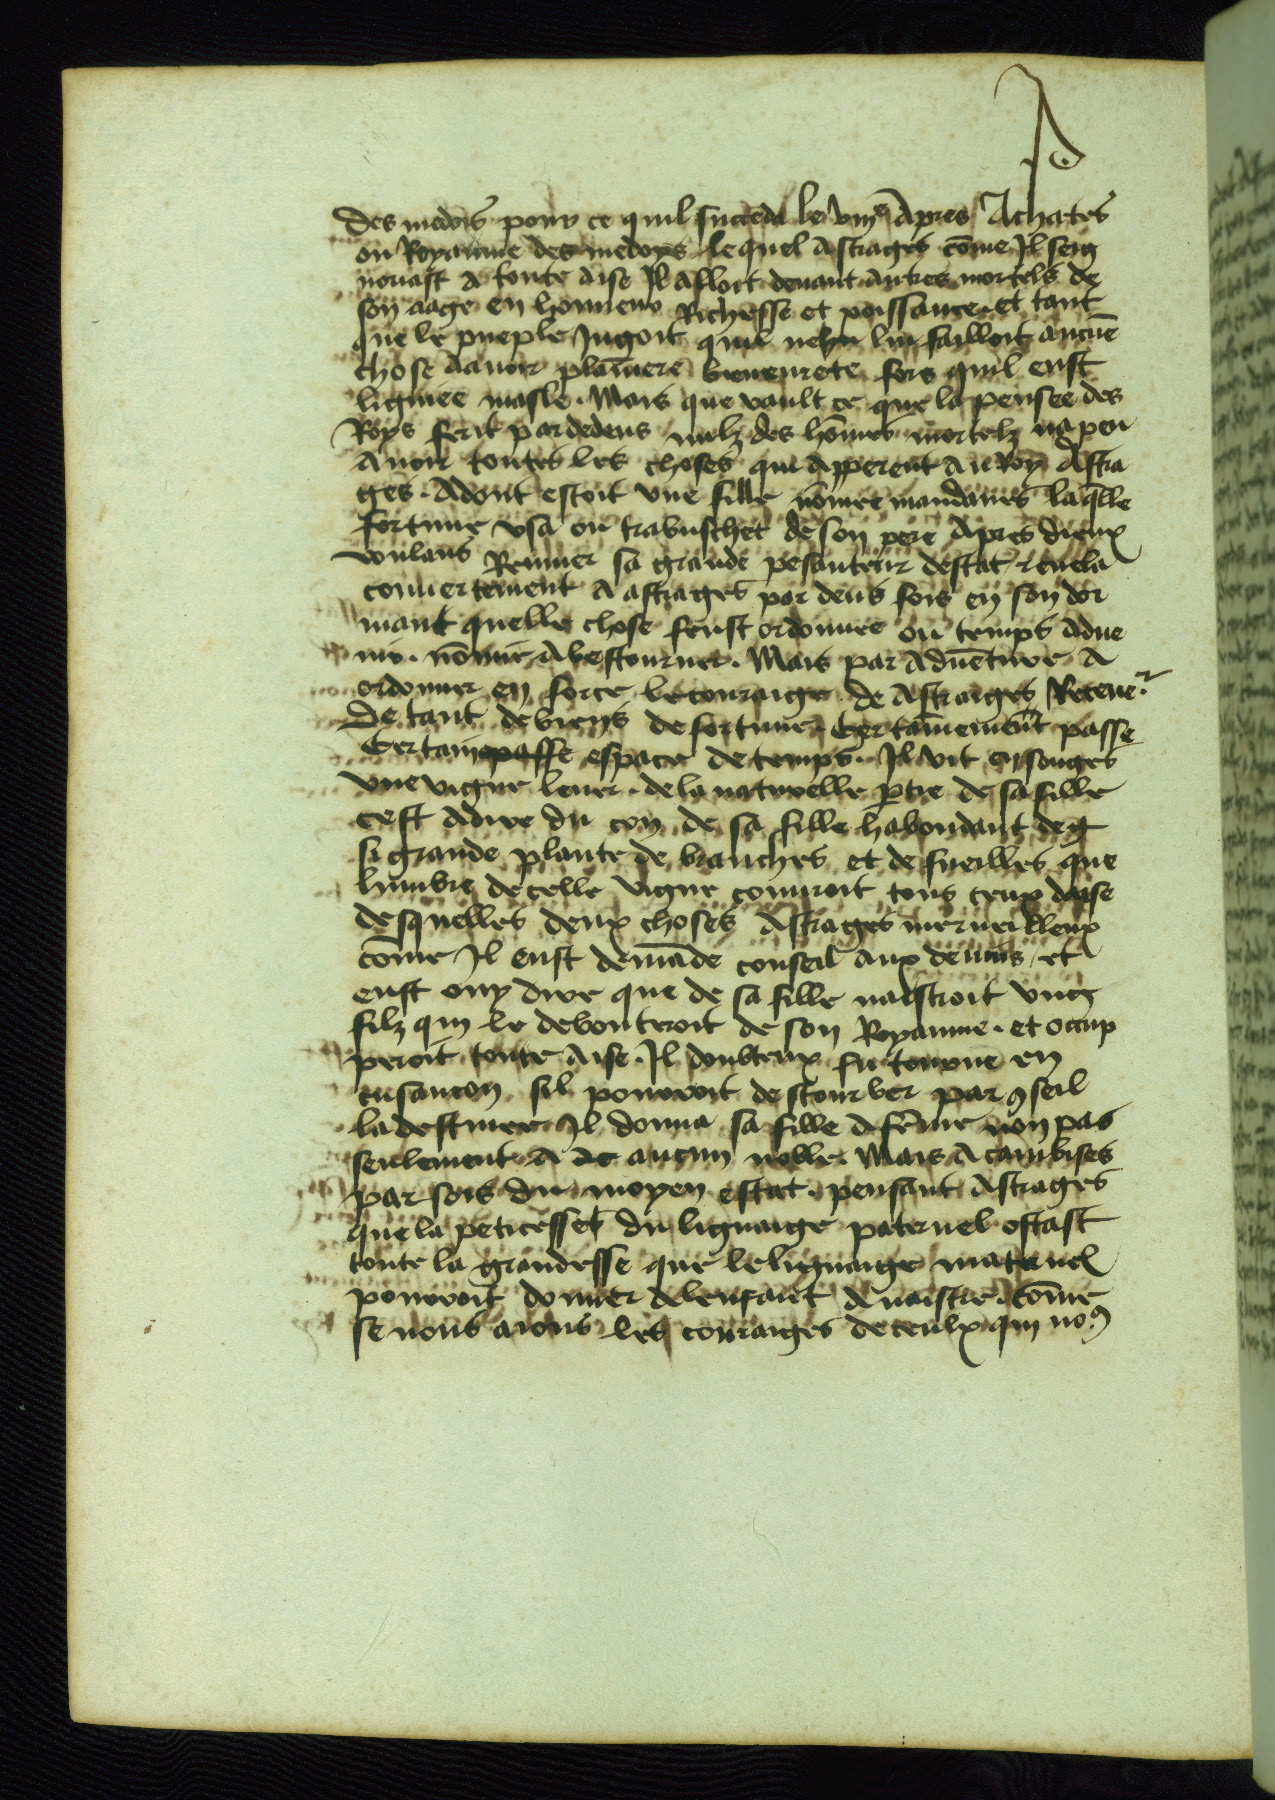 des medois pour ce quil succeda le viij.e Apres Achates
ou Royaume des medoys lequel Astrages cōme Il seig
nouast A toute aise Il Afloit deuant autres mortels de
son aage en honneur Richesse et poissance. et tant
que le pueple Jugoit quil ne luy failloit aucūe
chose Aauoir planiere bieneurete fors quil eust
ligniee masle. Mais que vault ce que la pensee des
Roys ferit par dedens nulz des hōmes mortelz na peu
Auoir toutes les choses qui Apperent Au Roy Astra
ges. Adont estoit vne fille nōmee mandanes laq̄lle
fortune vsa ou trabuschet de son pere Apres dieux
voulans Remuer sa grande pesanteur destat reuela
couuertement A astrages par deus fois en son dor
mant quelle chose feust ordonnee ou temps Adue
nir. nōmie A bestourner. Mais par Aduēture A
ordonner en force le couraige de Astraiges Receue.r
De tant de biens de fortune. Certainement passe
Certain passe espace de temps. Il vit en songes
vne vigne leuer. de la naturelle ptie de sa fille
cest Adire du con de sa fille habondant de g
si grande plante de branches et de fueilles que
lumbre de celle vigne couuroit tous ceux dase
desquelles deux choses Astrages merueilleux
cōme Il eust demāde conseil aux deuins et
eust ouy dire que de sa fille naistroit vng
filz qui le debouteroit de son Royaume. et occup
peroit toute Aise. Il doubteux fu tourne en
cusancon sil pouoroit destourber par 9seil
la destinee Il donna sa fille A fēme non pas
seulement A de aucun noble. Mais A cambises
par sois du moyen estat. pensant Astrages
que la peticesse du lignaige paternel ostast
toute la grandesse que le lignaige maternel
pouoroit donner A lenfant A naistre. cōme
se nous aions les couraiges de ceulx qui no9